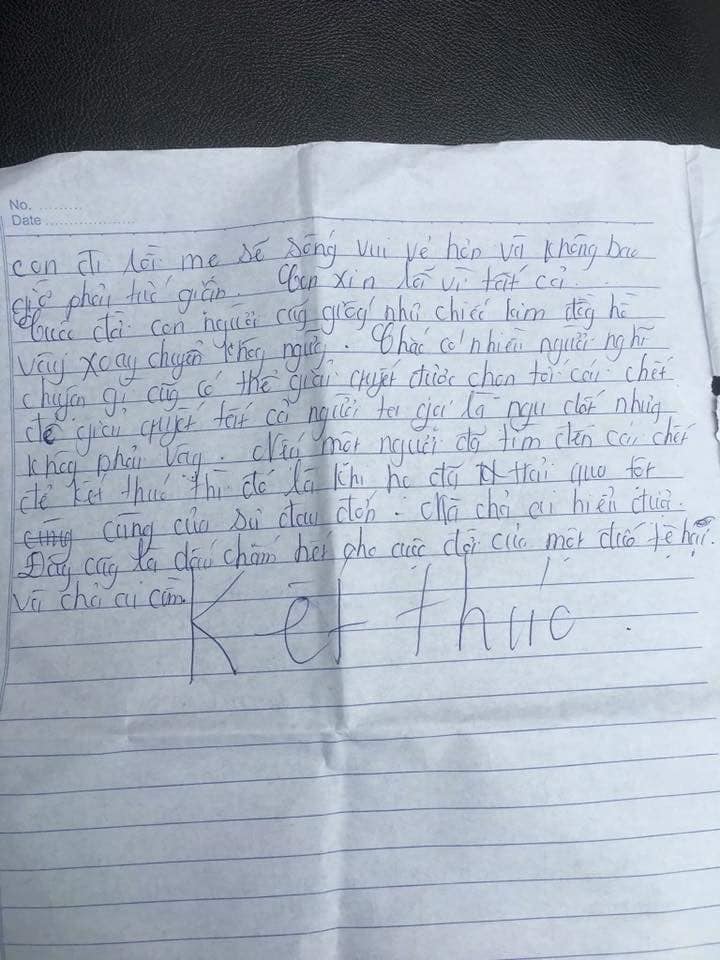 No. ..........
Date ....................
con đi rồi mẹ sẽ sống vui vẻ hơn và không bao
giờ phải tức giận. Con xin lỗi vì tất cả.
Cuộc đời con người cũg giống như chiếc kim đồg hồ
vậy xoay chuyển khôg ngừg. Chắc có nhiều người nghĩ
chuyện gì cũg có thể giải quyết được chọn tới cái chết
để giải quyết tất cả người ta gọi là ngu dốt nhưg
khôg phải vậy. một người đã tìm đến cái chết
để kết thúc thì đó là khi họ đã trải qua tột
cùng của sự đau đớn. Mà chả ai hiểu được.
Đây cũg là dấu chấm hết cho cuộc đời của một đứa tệ hại
và chả ai cần.
Kết thúc.